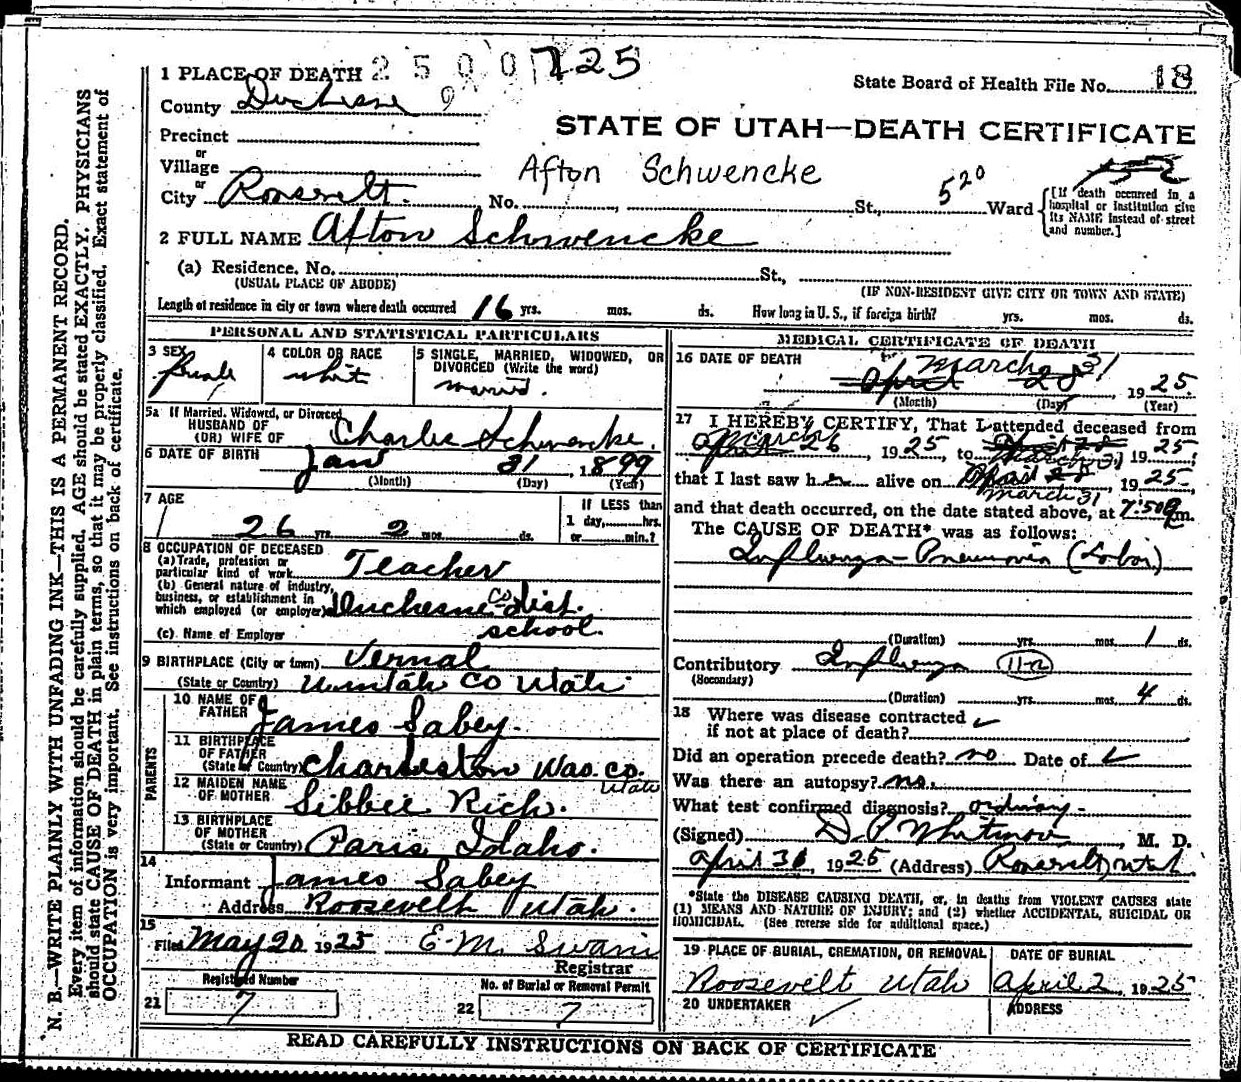 1 PLACE OF DEATH 2500 125
State Board of Health File No. 18
County Duchesne 9
STATE OF UTAH—DEATH CERTIFICATE
Precinct
or
Village
Afton Schwencke
or
City Roosevelt. No. St., 520 Ward
[If death occurred in a hospital or institution give its NAME instead of street and number.]
2 FULL NAME Afton Schwencke
(a) Residence. No. St.,
(USUAL PLACE OF ABODE) (IF NON-RESIDENT GIVE CITY OR TOWN AND STATE)
Length of residence in city or town where death occurred 16 yrs. mos. ds. How long in U. S., if foreign birth? yrs. mos. ds.
PERSONAL AND STATISTICAL PARTICULARS
3 SEX female
4 COLOR OR RACE white
5 SINGLE, MARRIED, WIDOWED, OR DIVORCED (Write the word) married.
5a If Married, Widowed, or Divorced
HUSBAND OF
(OR) WIFE OF Charles Schwencke.
6 DATE OF BIRTH Jan 31, 1899
(Month) (Day) (Year)
7 AGE 26 yrs. 2 mos. ds.
If LESS than
1 day, hrs.
or min.?
8 OCCUPATION OF DECEASED
(a) Trade, profession or
particular kind of work Teacher
(b) General nature of industry,
business, or establishment in
which employed (or employer) Duchesne Co dist.
school.
(c) Name of Employer
9 BIRTHPLACE (City or town) Vernal
(State or Country) Uuntah Co Utah
PARENTS
10 NAME OF
FATHER James Sabey.
11 BIRTHPLACE
OF FATHER
(State or Country) Charleston Was. Co.
Utah
12 MAIDEN NAME
OF MOTHER Sibbie Rich.
13 BIRTHPLACE
OF MOTHER
(State or Country) Paris Idaho.
14
Informant James Sabey
Address Roosevelt Utah.
15
Filed May 20 1925 E. M. Swain
Registrar
Registered Number
21 7
No. of Burial or Removal Permit
22 7
MEDICAL CERTIFICATE OF DEATH
16 DATE OF DEATH March 31
April 28 1925
(Month) (Day) (Year)
17 I HEREBY CERTIFY, That I attended deceased from
March
April 26, 1925, to April 28 March 31 1925;
that I last saw her alive on April 28, 1925,
March 31
and that death occurred, on the date stated above, at 7:50 Pm.
The CAUSE OF DEATH* was as follows:
Influenza-Pneumonia (Lobar)
(Duration) yrs. mos. 1 ds.
Contributory Influenza 11-a
(Secondary)
(Duration) yrs. mos. 4 ds.
18 Where was disease contracted
if not at place of death?
Did an operation precede death? no Date of
Was there an autopsy? no.
What test confirmed diagnosis? ordinary-
(Signed) D P Whitmore, M. D.
April 30, 1925 (Address) Roosevelt, Utah
*State the DISEASE CAUSING DEATH, or, in deaths from VIOLENT CAUSES state
(1) MEANS AND NATURE OF INJURY; and (2) whether ACCIDENTAL, SUICIDAL OR
HOMICIDAL. (See reverse side for additional space.)
19 PLACE OF BURIAL, CREMATION, OR REMOVAL
Roosevelt Utah
DATE OF BURIAL
April 2, 1925
20 UNDERTAKER
ADDRESS
READ CAREFULLY INSTRUCTIONS ON BACK OF CERTIFICATE
N. B.—WRITE PLAINLY WITH UNFADING INK—THIS IS A PERMANENT RECORD.
Every item of information should be carefully supplied. AGE should be stated EXACTLY. PHYSICIANS
should state CAUSE OF DEATH in plain terms, so that it may be properly classified. Exact statement of
OCCUPATION is very important. See instructions on back of certificate.